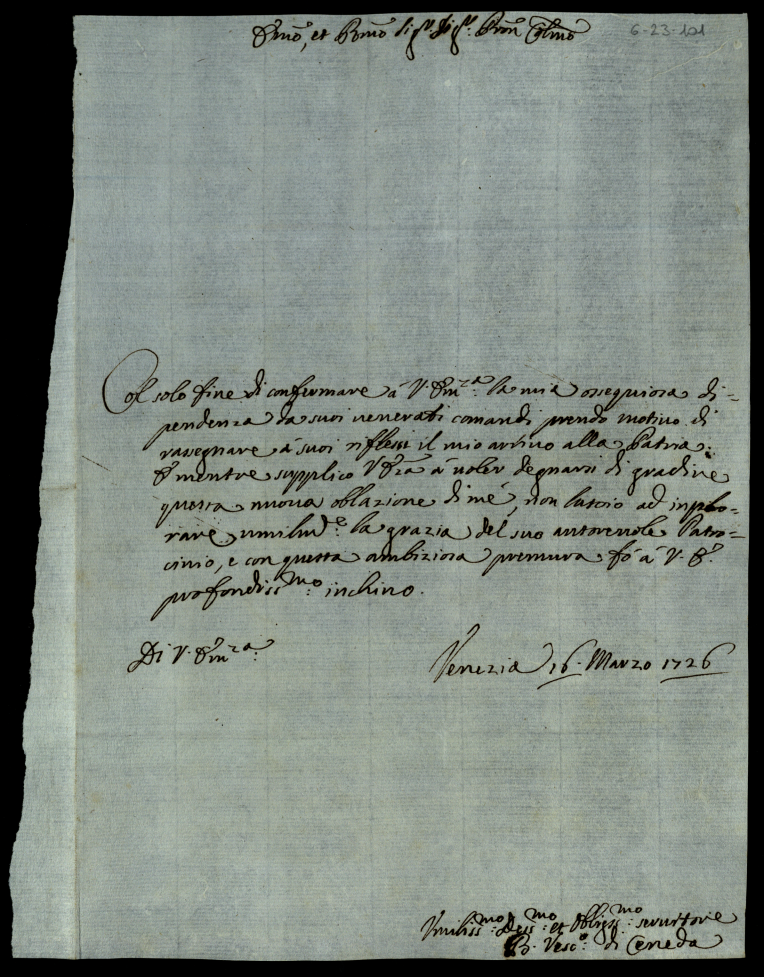 Em̃o, et Rm̃o Sig.r Sig.r Pron̄ Colmo
6-23-101
Col solo fine di confermare à V. Em.za la mia ossequiosa di=
pendenza da suoi venerati comandi prendo motivo di
rassegnare à suoi riflessi il mio arrivo alla Patria:
E mentre supplico V. Eza à voler degnarsi di gradire
questa nuova oblazione di me, non lascio ad implo-
rare umilm.e la grazia del suo autorevole Patro=
cinio, e con questa ambiziosa premura fò à V. E.
profondiss.mo inchino.
Di V. Em.za
Venezia 16. Marzo 1726
Umiliss.mo et Obligss.mo servitore
B. Vesc.o di Ceneda